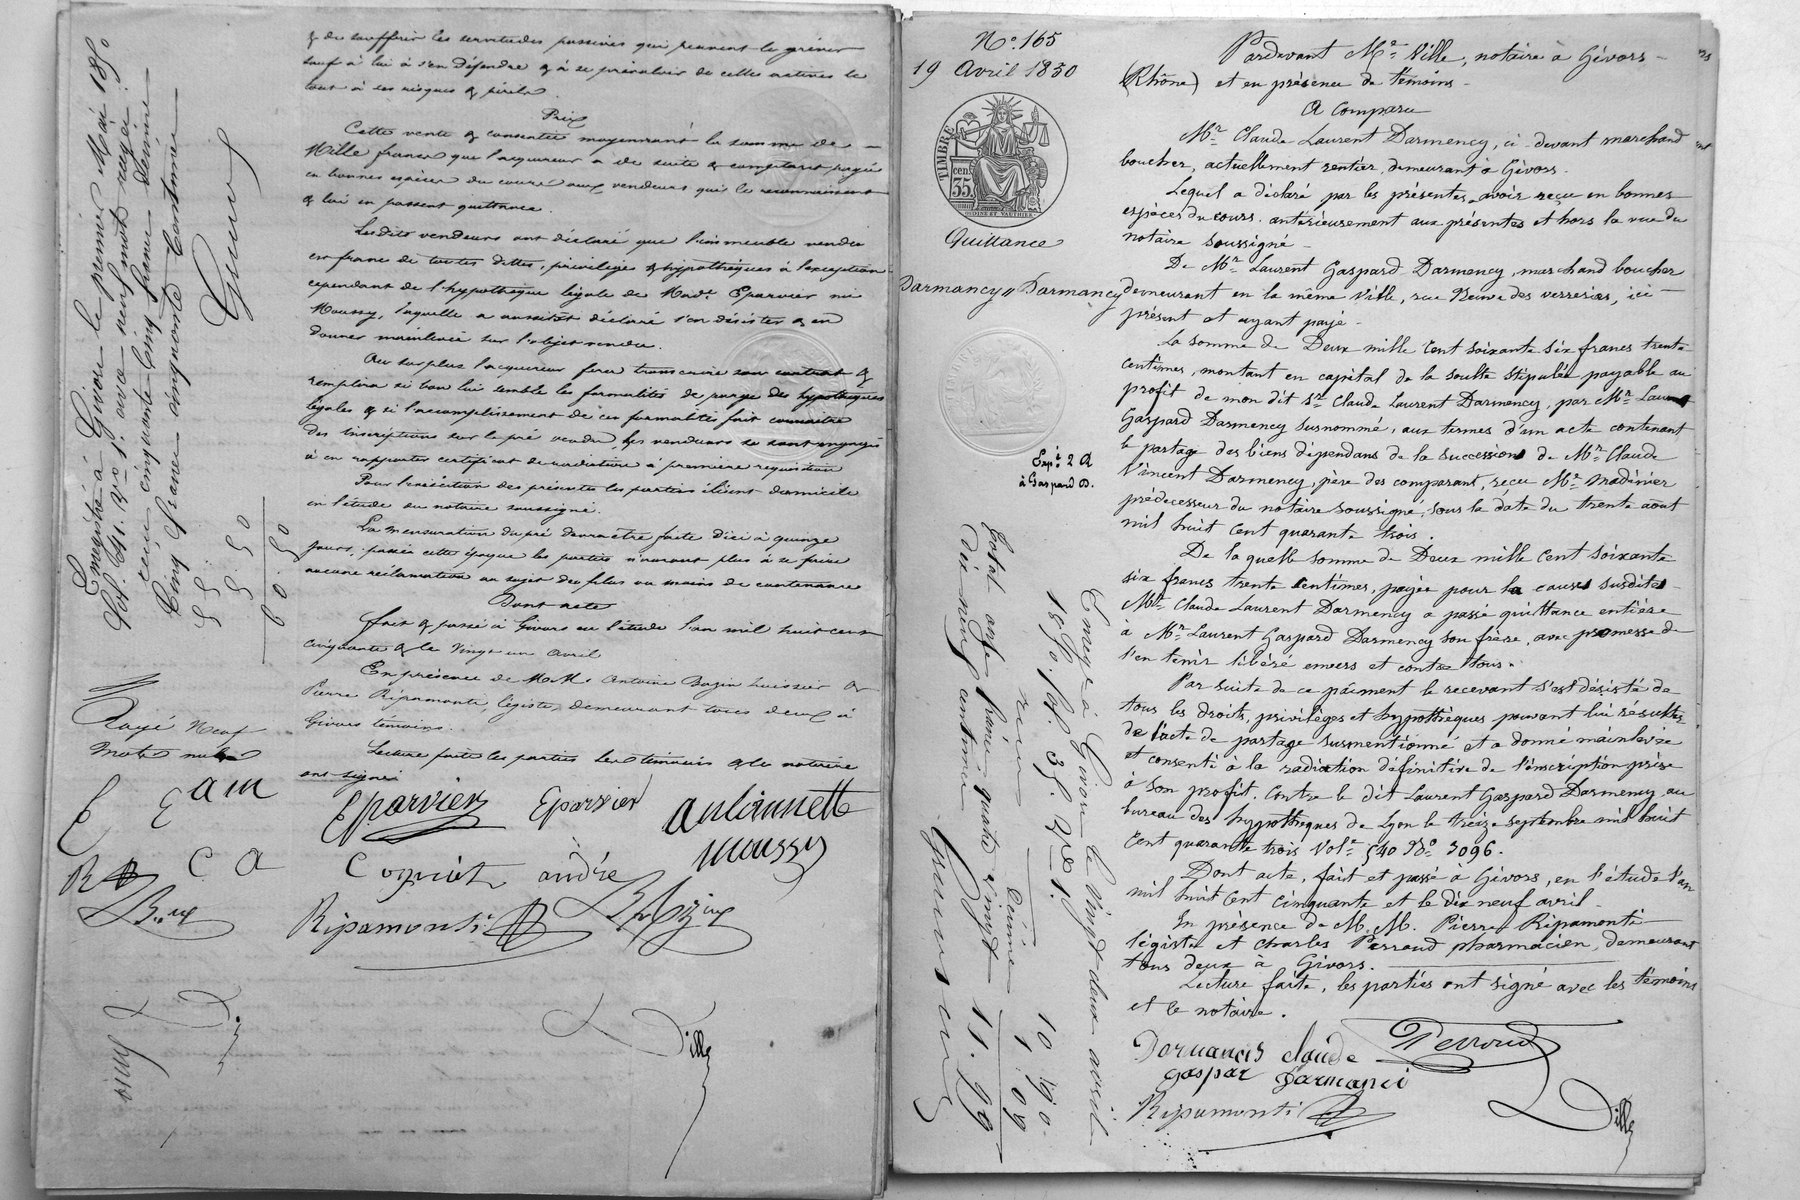 & de souffrir les servitudes passives qui peuvent le grever
sauf à lui à s'en défendre & à se prévaloir de celles actives le
tout à ses risques & périls
Prix
Cette vente & consentie moyennant la somme de
Mille francs que l'acquéreur a de suite & comptant payés
en bonnes espèces du cours aux vendeurs qui le reconnaissent
& lui en passent quittance.
Lesdits vendeurs ont déclaré que l'immeuble vendu
est franc de toutes dettes, privilèges & hypothèques à l'exception
cependant de l'hypothèque légale de Made Eparvier née
Moussy, laquelle a aussitôt déclaré s'en désister & en
donner mainlevée sur l'objet vendu.
Au surplus l'acquéreur fera transcrire son contrat &
remplira si bon lui semble les formalités de purge des hypothèques
légales & si l'accomplissement de ces formalités fait connaître
des inscriptions sur le pré vendu, les vendeurs se sont engagés
à en rapporter certificat de radiation à première réquisition
Pour l'exécution des présentes les parties élisent domicile
en l'étude du notaire soussigné.
La mensuration du pré devra être faite d'ici à quinze
jours, passée cette époque les parties n'auront plus à se faire
aucune réclamation au sujet du plus ou moins de contenance
Dont acte
fait & passé à Givors en l'étude l'an mil huit cent
cinquante & le vingt un avril
En présence de M.M. Antoine Bazin huissier &
Pierre Ripamonti, légiste, demeurant tous deux à
Givors témoins.
Lecture faite les parties les témoins & le notaire
ont signé
Rayé neuf
mots nuls
E E am
R C A
Eparvier Eparvier antoinnette
moussy
andré
Ripamonti
Dille
Enregistré à Givors le premier Mai 1850
avec neuf mots rayés
reçu cinquante cinq francs Décime
Cinq francs cinquante Centimes
55.
5.50
60.50
No. 165
19 Avril 1850
TIMBRE
35 cen
Quittance
Darmancy // Darmancy
Expé 2 R
à Gaspard D.
Enreg. à Givors le vingt deux avril
1850. fol. 35.
reçu
Décime
Total onze francs quatre vingt
dix neuf centimes
10.90.
1.09
11.99
Pardevant Me Ville, notaire à Givors
(Rhône) et en présence de témoins
A Comparu
Mr. Claude Laurent Darmency, ci devant marchand
boucher, actuellement rentier, demeurant à Givors.
Lequel a déclaré par les présentes, avoir reçu en bonnes
espèces du cours, antérieurement aux présentes et hors la vue du
notaire soussigné
De Mr. Laurent Gaspard Darmency, marchand boucher
demeurant en la même Ville, rue Neuve des verreries, ici
présent et ayant payé
La somme de Deux mille Cent soixante six francs trente
centimes, montant en capital de la soulte stipulée payable au
profit de mon dit Sr. Claude Laurent Darmency, par Mr. Laurent
Gaspard Darmency susnommé, aux termes d'un acte contenant
le partage des biens dépendans de la succession de Mr. Claude
Vincent Darmency, père des comparant, reçu Me Madinier
prédecesseur du notaire soussigné, sous la date du trente août
mil huit cent quarante trois.
De la quelle somme de Deux mille Cent soixante
six francs trente Centimes, payée pour la causes susdites
Mr. Claude Laurent Darmency a passé quittance entière
à Mr. Laurent Gaspard Darmency son frère, avec promesse de
l'en tenir libéré envers et contre tous.
Par suite de ce paiment le recevant s'est désisté de
tous les droits, privilèges et hypothèques pouvant lui résulter
de l'acte de partage susmentionné et a donné mainlevée
et consenti à la radiation définitive de l'inscription prise
à son profit, Contre le dit Laurent Gaspard Darmency au
bureau des hypothèques de Lyon le treize septembre mil huit
cent quarante trois Vole. 540 No 3096.
Dont acte, fait et passé à Givors, en l'étude l'an
mil huit cent cinquante et le dix neuf avril
En présence de M.M. Pierre Ripamonti
légiste et Charles Perroud pharmacien, demeurant
tous deux à Givors.
Lecture faite, les parties ont signé avec les témoins
et le notaire.
claude
Perroud
gaspar Darmanci
Ripamonti
Dille